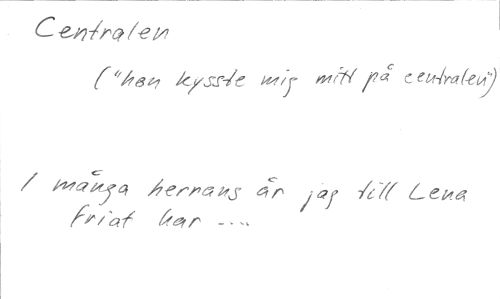 Centralen
("hon kysste mig mitt på centralen")
I många herrans år jag till Lena
friat har ....